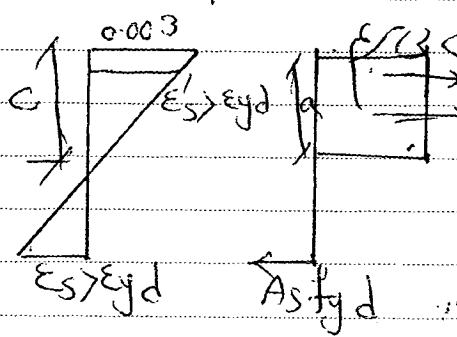 0.003
c
ε's>εyd
a
εs>εyd
Asfyd